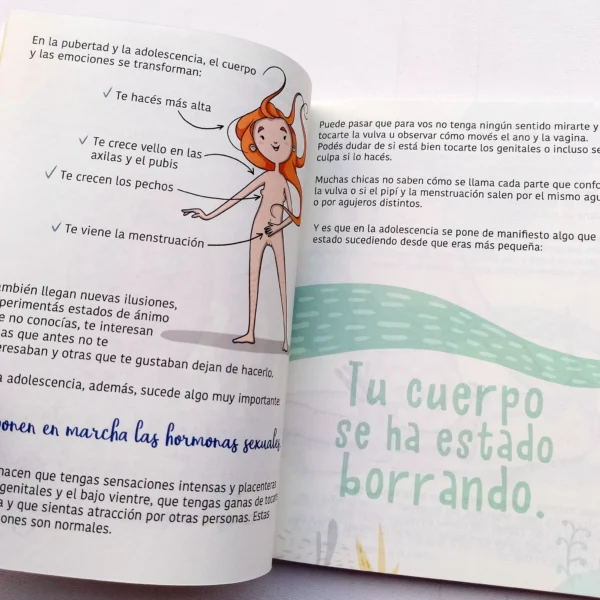 En la pubertad y la adolescencia, el cuerpo
y las emociones se transforman:
✓ Te hacés más alta
✓ Te crece vello en las
axilas y el pubis
✓ Te crecen los pechos
✓ Te viene la menstruación
también llegan nuevas ilusiones,
experimentás estados de ánimo
e no conocías, te interesan
as que antes no te
eresaban y otras que te gustaban dejan de hacerlo.
a adolescencia, además, sucede algo muy importante
ponen en marcha las hormonas sexuales
hacen que tengas sensaciones intensas y placenteras
genitales y el bajo vientre, que tengas ganas de tocar
a y que sientas atracción por otras personas. Estas
ones son normales.
Puede pasar que para vos no tenga ningún sentido mirarte y
tocarte la vulva u observar cómo movés el ano y la vagina.
Podés dudar de si está bien tocarte los genitales o incluso se
culpa si lo hacés.
Muchas chicas no saben cómo se llama cada parte que confo
la vulva o si el pipí y la menstruación salen por el mismo agu
o por agujeros distintos.
Y es que en la adolescencia se pone de manifiesto algo que
estado sucediendo desde que eras más pequeña:
Tu cuerpo
se ha estado
borrando.